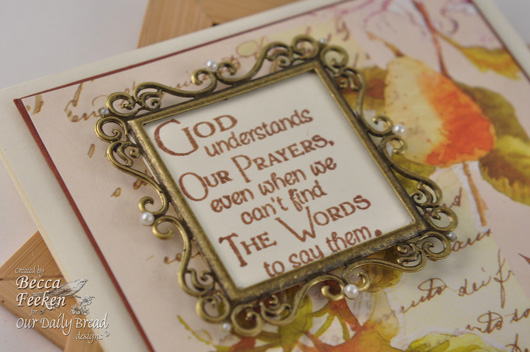 GOD
understands
OUR PRAYERS,
even when we
can't find
THE WORDS
to say them.
created by
Becca
Feeken
for
OUR DAILY BREAD
designs